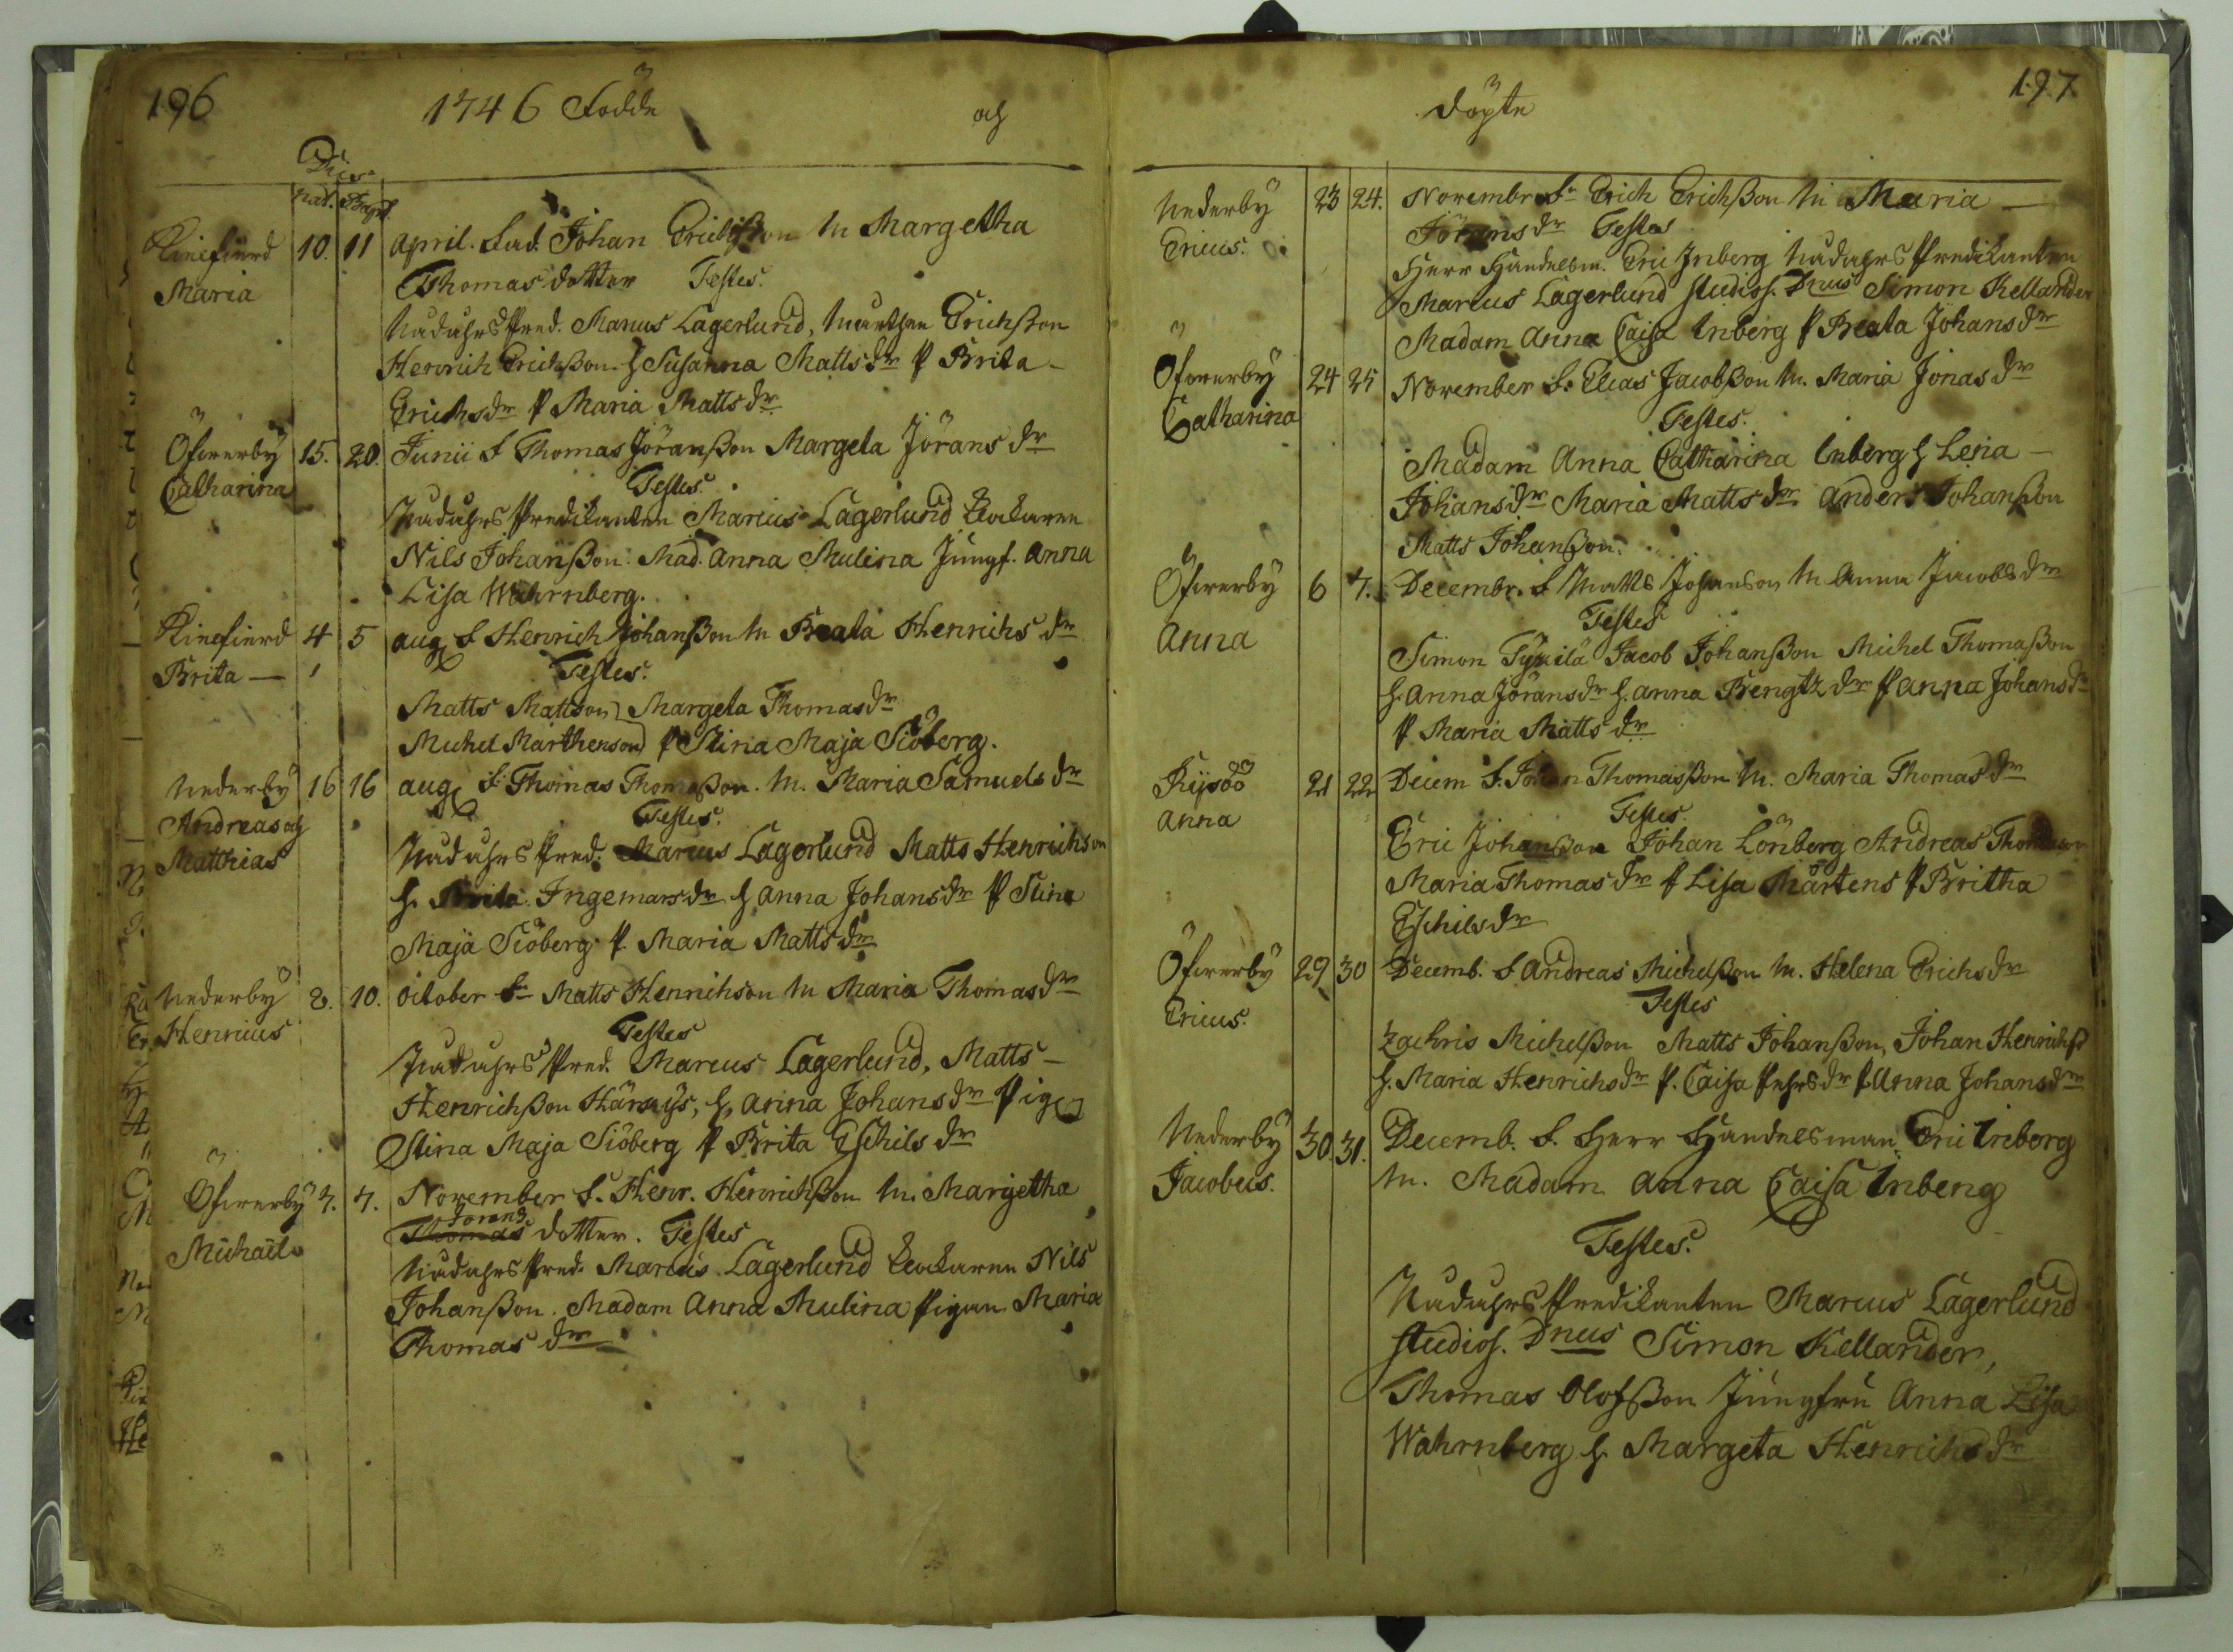 196
1746 Födde och
Dies
nat. Bapt.
Kinefierd 10. 11 April. Fad. Johan Erichßon M Margetha
Maria Thomas dotter Testes.
Nådåhrs Pred. Marcus Lagerlund, Marthen Erichßon
Henrich Erichßon H Susanna Mattsdr P Brita
Erichsdr P Maria Mattsdr
Öfwerby 15. 20. Junii F Thomas Jöranßon Margeta Jörans dr
Catharina Testes.
Nådåhrs Predikanten Marcus Lagerlund Klockaren
Nils Johanßon Mad. Anna Mulina Jungf. Anna
Lisa Wahrnberg.
Kinefierd 4 5 aug F Henrich Johanßon M Beata Henrichs dr
Brita — Testes.
Matts Mattson Margeta Thomasdr
Michel Marthenson P Stina Maja Siöberg.
Nederby 16 16 aug F. Thomas Thomaßon. M. Maria Samuels dr
Andreas och Testes.
Matthias Nådåhrs Pred. Marcus Lagerlund Matts Henrichson
H. Brita Ingemarsdr H Anna Johansdr P Stina
Maja Siöberg P. Maria Mattsdr
Nederby 8. 10. October Fr Matts Henrichson M Maria Thomasdr
Henricus Testes
Nådåhrs Pred. Marcus Lagerlund, Matts —
Henrichßon H. Anna Johansdr Pig
Stina Maja Siöberg P Brita Eschils dr
Öfwerby 7. 7. November F. Henr. Henrichßon M. Margetha
Jorans
Michaël Thomas dotter. Testes
Nådåhrs Pred. Marcus Lagerlund Klockaren Nils
Johanßon. Madam Anna Mulina Pigan Maria
Thomas dr
197
döpte
Nederby 23 24. Novembr Fr Erich Erichßon M Maria —
Ericus. Jöransdr Testes
Herr Handelsm. Eric Inberg Nådåhrs Predikanten
Marcus Lagerlund studios. Dnus Simon Kellander
Madam Anna Caisa Inberg P Beata Johansdr
Öfwerby 24 25 November F. Elias Jacobßon M. Maria Jonas dr
Catharina Testes.
Madam Anna Catharina Inberg H Lena —
Johansdr Maria Mattsdr Anders Johanßon
Matts Johanßon.
Öfwerby 6 7. Decembr. F Matts Johanson M Anna Jacobsdr
Anna Testes
Simon Jacob Johanßon Michel Thomaßon
H. Anna Jöransdr H. Anna Bengtz dr P Anna Johansdr
P Maria Mattsdr
21 22 Decem F. Johan Thomasßon M. Maria Thomasdr
Anna Testes.
Eric Johanßon Johan Lönberg Andreas Thomasson
Maria Thomasdr P Lisa Mårtens P Britha
Eschilsdr
Öfwerby 29 30 Decemb. F Andreas Michelßon M. Helena Erichsdr
Ericus. Testes
Zachris Michelßon Matts Johanßon, Johan Henrichß
H. Maria Henrichsdr P. Caisa Pehrsdr P Anna Johansdr
Nederby 30. 31. Decemb. F. Herr Handelsman Eric Inberg
Jacobus. M. Madam Anna Caisa Inberg
Testes.
Nådåhrs Predikanten Marcus Lagerlund
studios. Dnus Simon Kellander,
Thomas Olofßon Jungfru Anna Lisa
Wahrnberg H. Margeta Henrichsdr